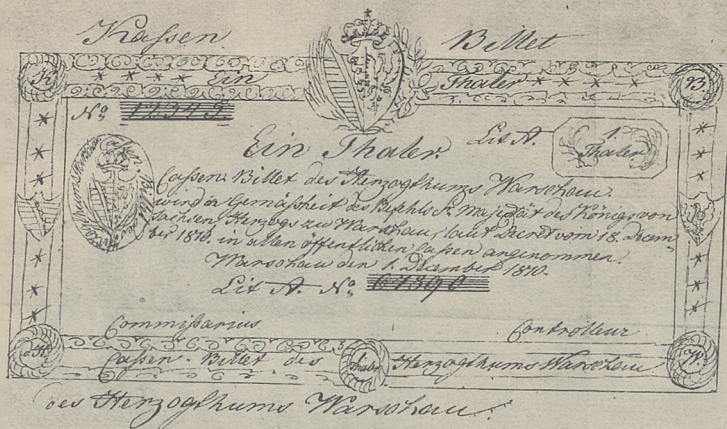 Kassen Billet
K. Ein Thaler B.
No 12345
Ein Thaler. Lit A. 1. Thaler
Cassen Billet des Herzogthums Warschau
wird in Gemäßheit des Befehls Sr. Majestät des Königs von
Sachsen Herzogs zu Warschau, laut Decret vom 18. Decem-
ber 1810. in allen öffentlichen Cassen angenommen.
Warschau den 1. December 1810.
Lit A. No 67890
Commissarius Controlleur
H. W.
Cassen-Billet des 1 Thaler Herzogthums Warschau
des Herzogthums Warschau.